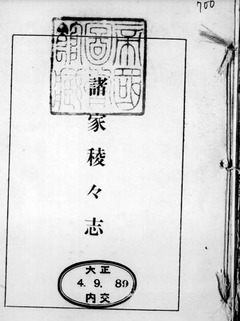 700
帝國
圖書
館藏
諸家稜々志
大正
4. 9. 89
内交